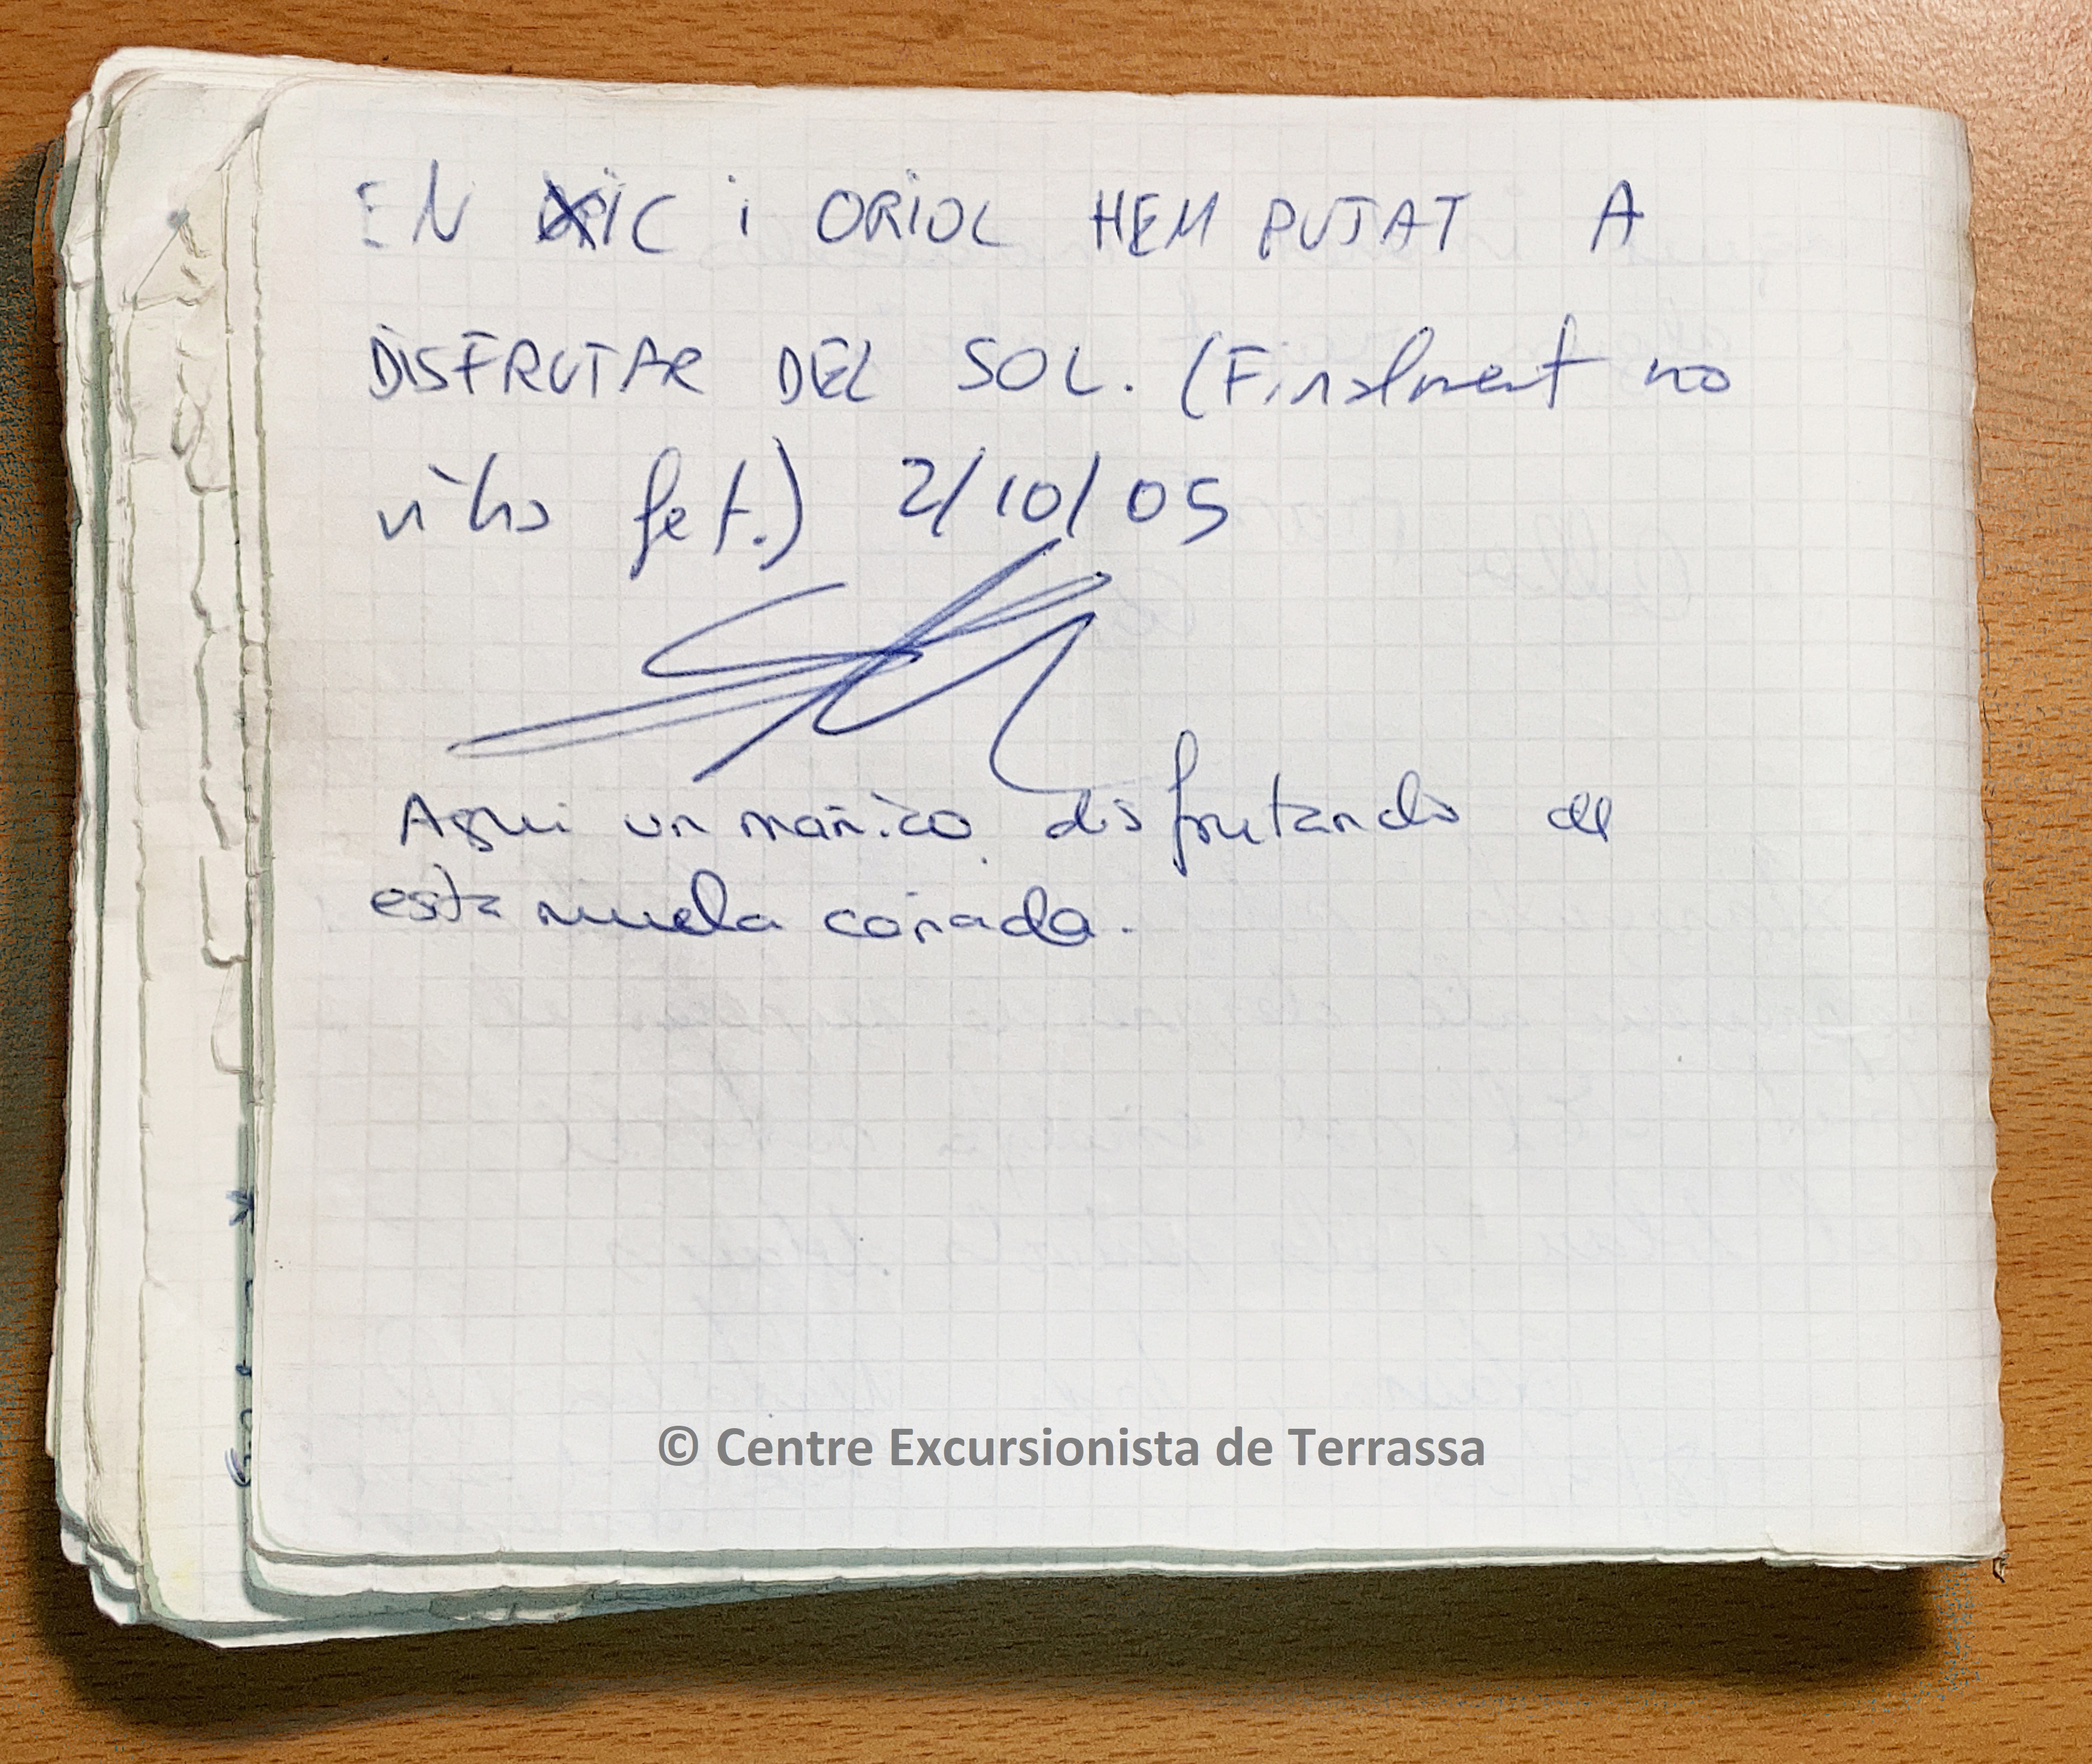 EN XIC i ORIOL HEM PUJAT A
DISFRUTAR DEL SOL. (Finalment no
n'ha fet.) 2/10/05
Aqui un mañico disfrutando de
esta muela coñada.
© Centre Excursionista de Terrassa